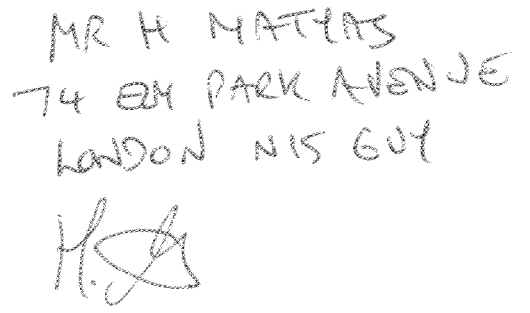 MR H MATYAS
74 ELM PARK AVENUE
LONDON N15 6UY